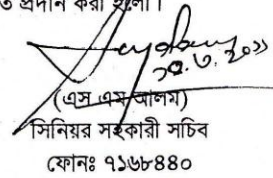 ও প্রদান করা হলো।
১৫.৩.২০১১
(এস এম আলম)
সিনিয়র সহকারী সচিব
ফোনঃ ৭১৬৮৪৪০